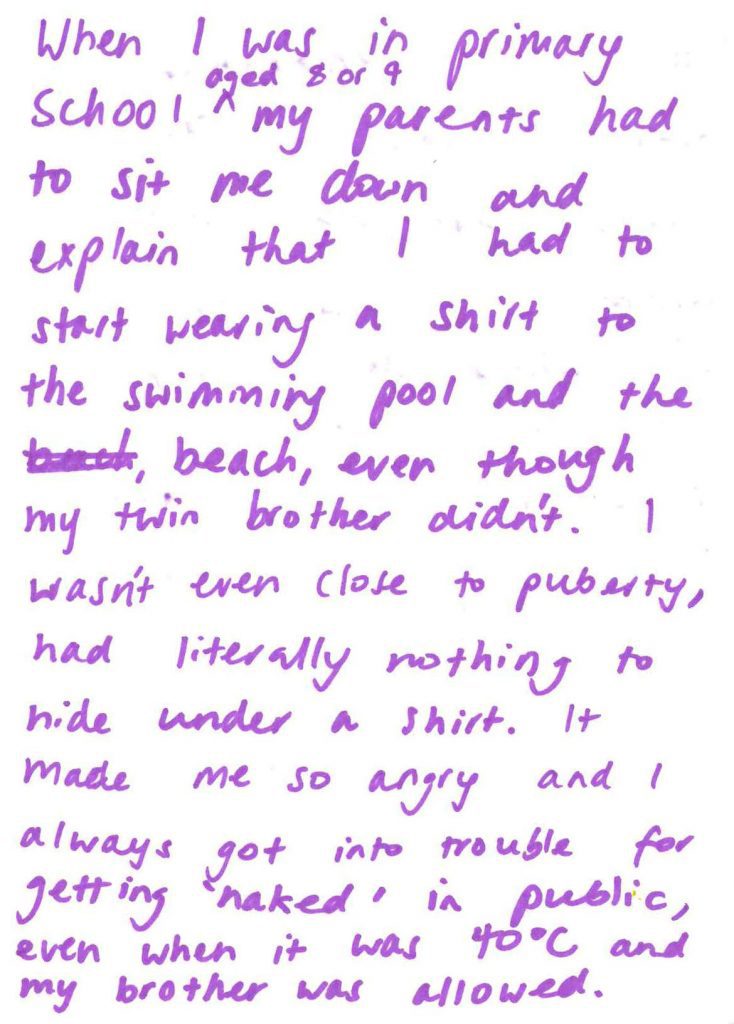 When I was in primary
aged 8 or 9
School ^ my parents had
to sit me down and
explain that I had to
start wearing a shirt to
the swimming pool and the
beach, beach, even though
my twin brother didn't. I
wasn't even close to puberty,
had literally nothing to
hide under a shirt. It
made me so angry and I
always got into trouble for
getting 'naked' in public,
even when it was 40°C and
my brother was allowed.